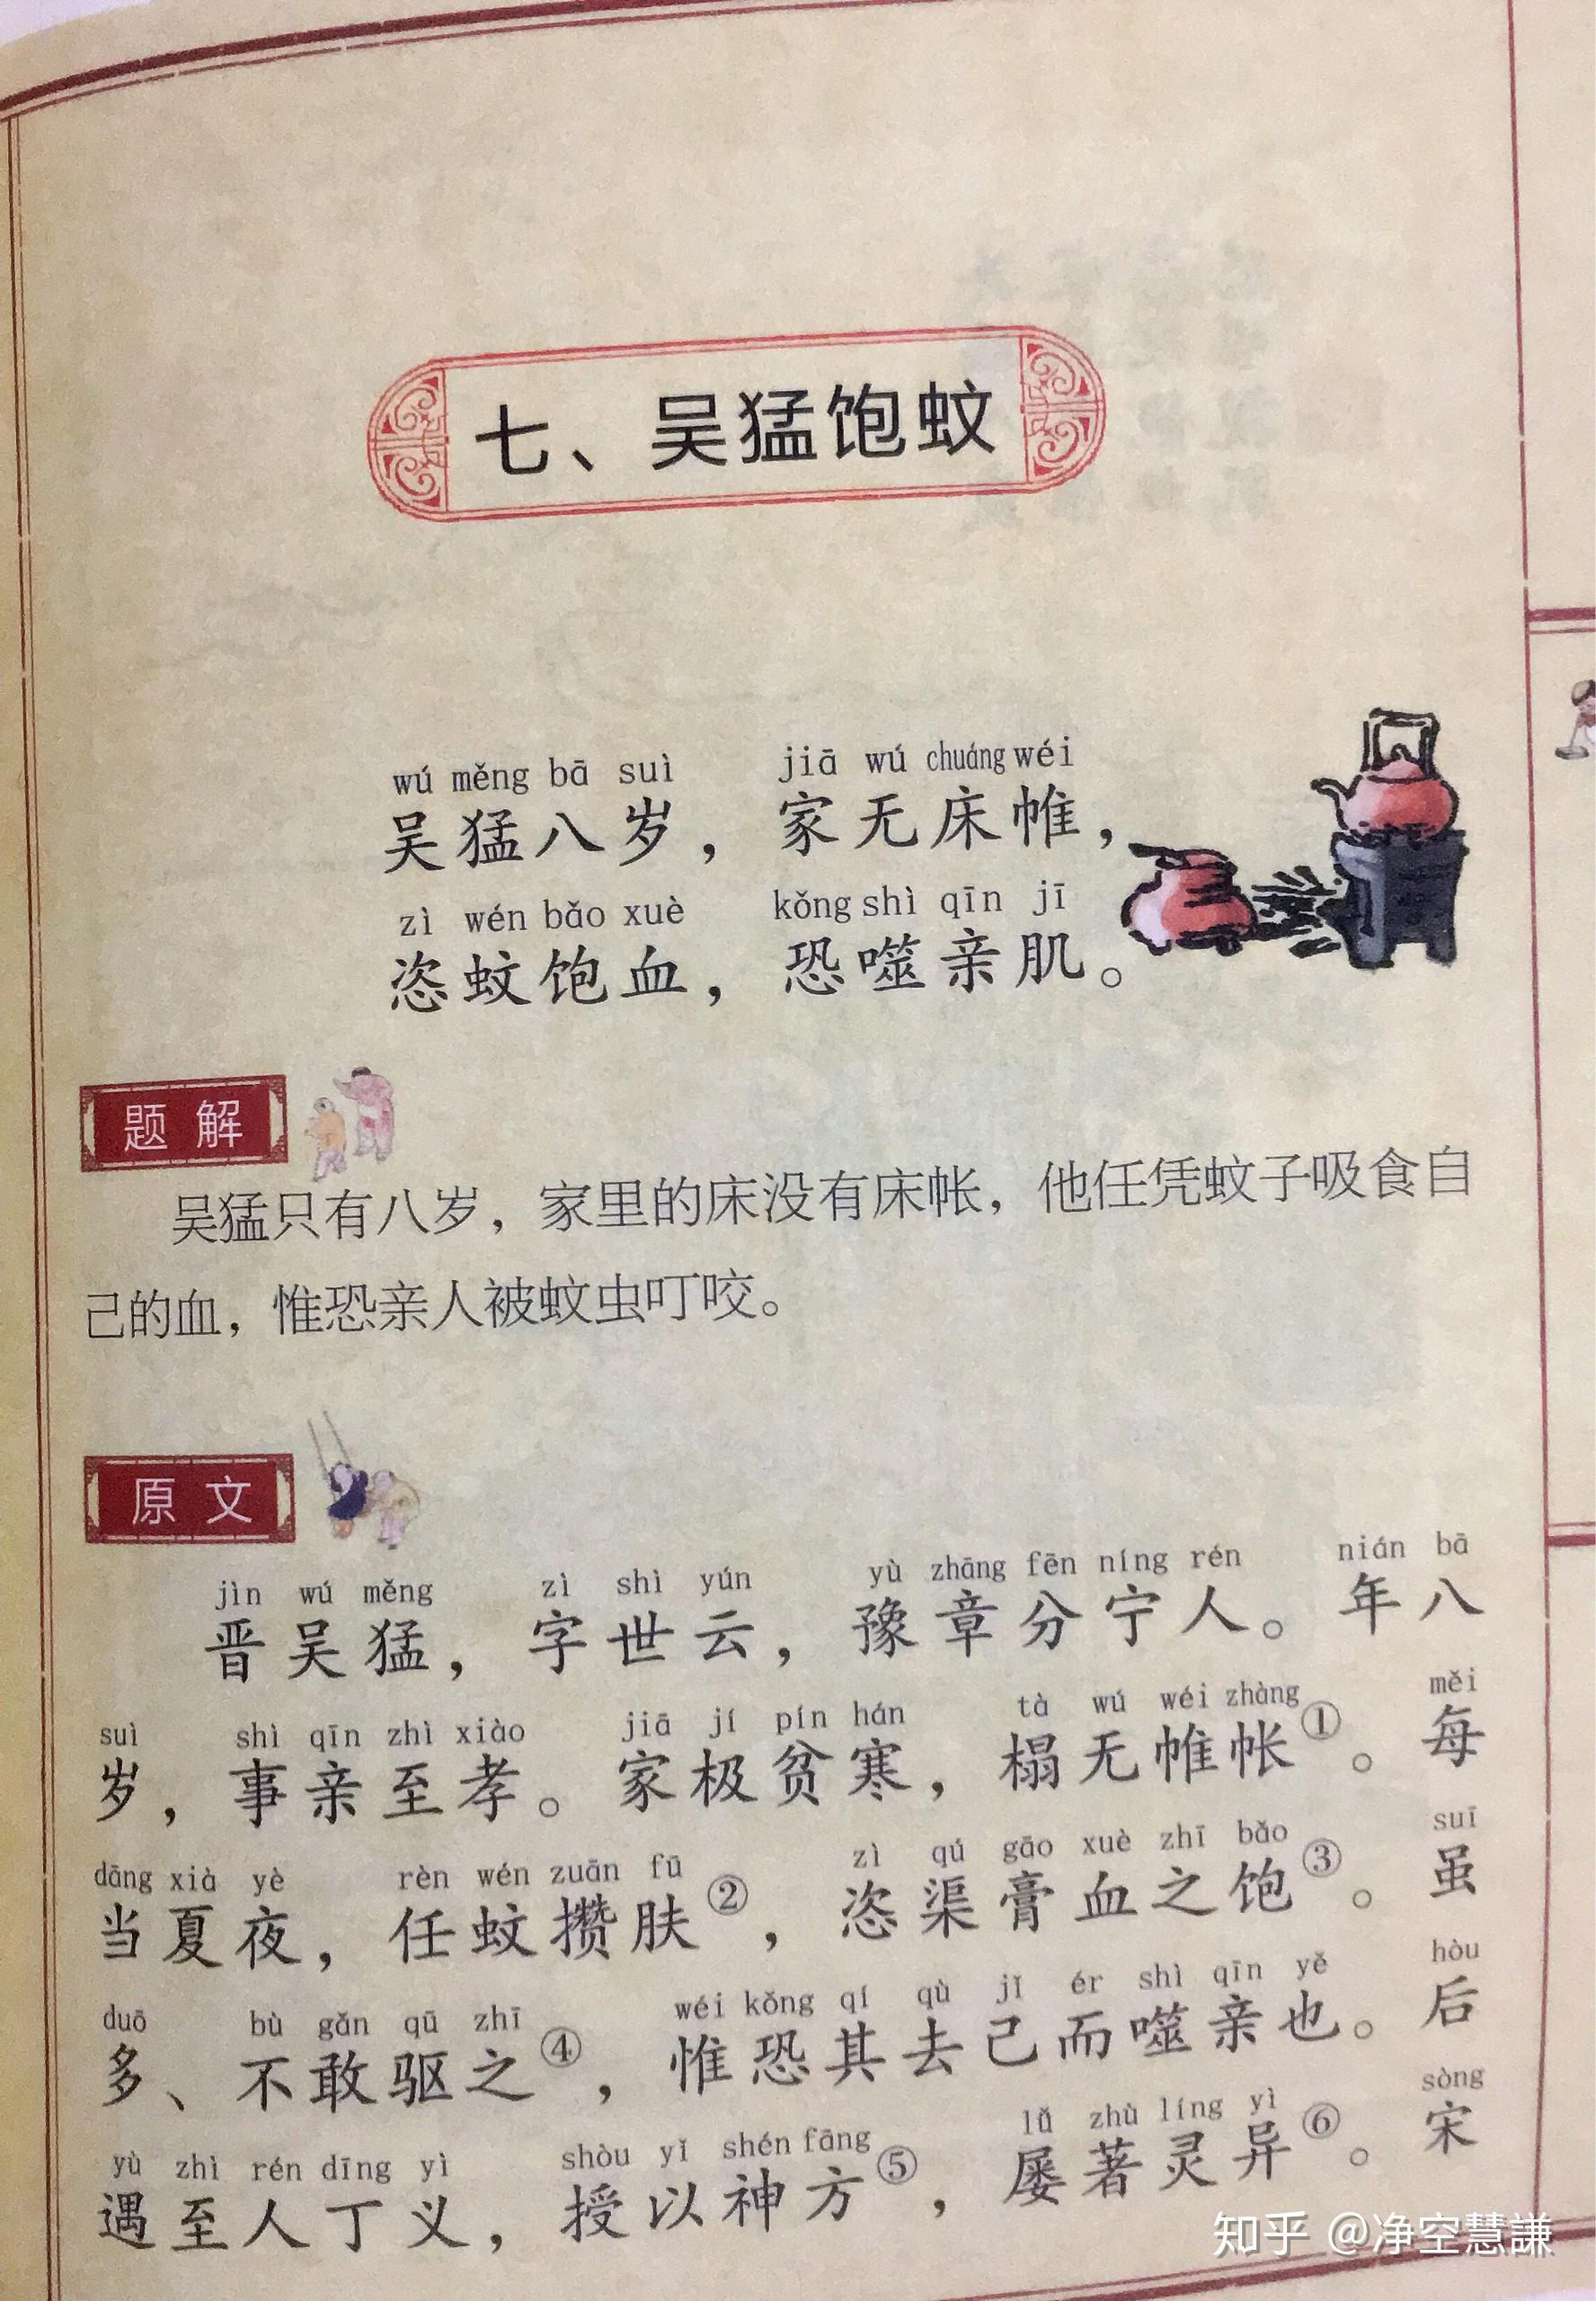 七、吴猛饱蚊
wú měng bā suì jiā wú chuáng wéi
吴猛八岁，家无床帷，
zì wén bǎo xuè kǒng shì qīn jī
恣蚊饱血，恐噬亲肌。
题解
吴猛只有八岁，家里的床没有床帐，他任凭蚊子吸食自
己的血，惟恐亲人被蚊虫叮咬。
原文
jìn wú měng zì shì yún yù zhāng fēn níng rén nián bā
晋吴猛，字世云，豫章分宁人。年八
suì shì qīn zhì xiào jiā jí pín hán tà wú wéi zhàng měi
岁，事亲至孝。家极贫寒，榻无帷帐①。每
dāng xià yè rèn wén zuān fū zì qú gāo xuè zhī bǎo suī
当夏夜，任蚊攒肤②，恣渠膏血之饱③。虽
duō bù gǎn qū zhī wéi kǒng qí qù jǐ ér shì qīn yě hòu
多、不敢驱之④，惟恐其去己而噬亲也。后
yù zhì rén dīng yì shòu yǐ shén fāng lǚ zhù líng yì sòng
遇至人丁义，授以神方⑤，屡著灵异⑥。宋
知乎 @净空慧謙